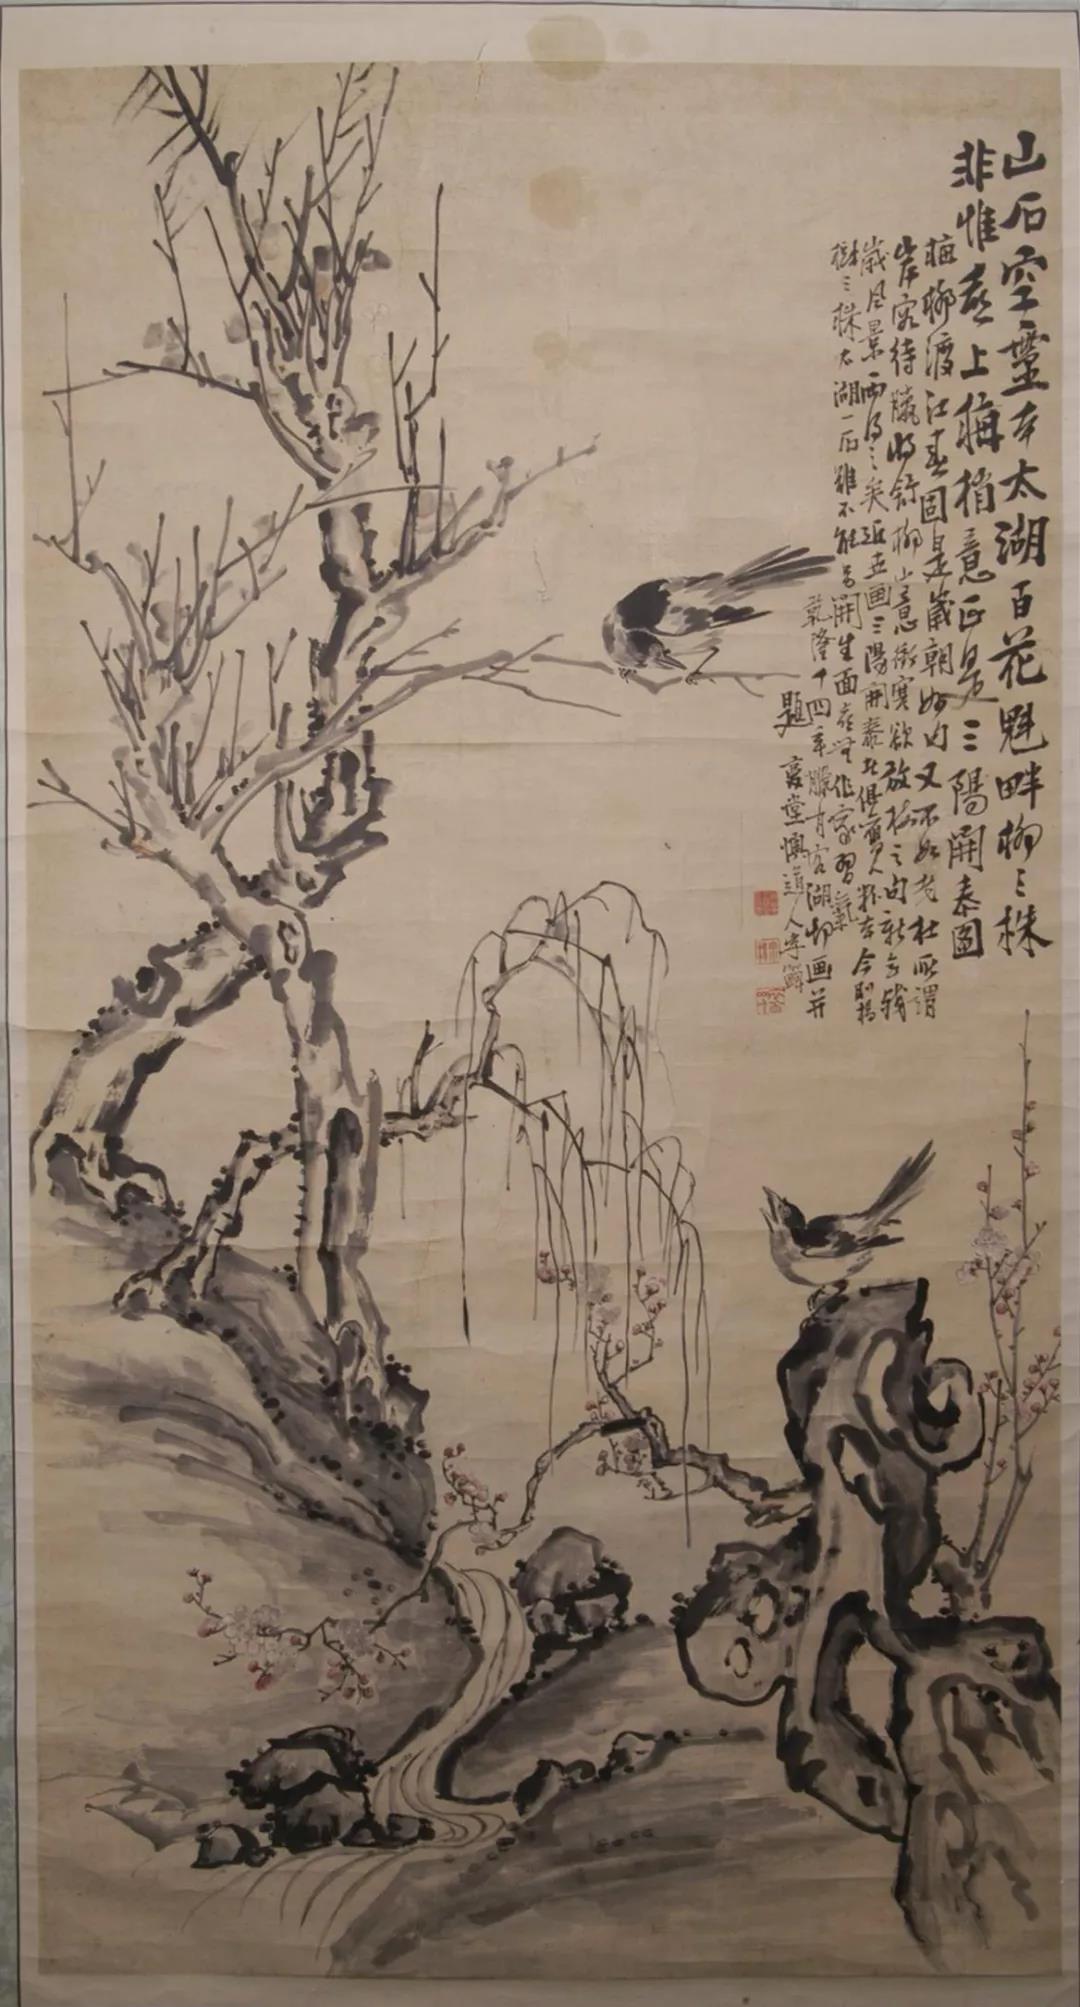 山石空靈本太湖百花魁畔柳三株
非惟喜上梅梢意正是三陽開泰圖
梅柳渡江春固是歲朝妙句又不如老杜所謂
岸容待臘將舒柳山意衝寒欲放梅之句
歲風景兩得之矣近世畫三陽開泰 俱 人粉本今
樹三株太湖一石雖不能 開生面 作家習氣
乾隆十四年臘月 湖 画并
題 復堂懊道人李鱓